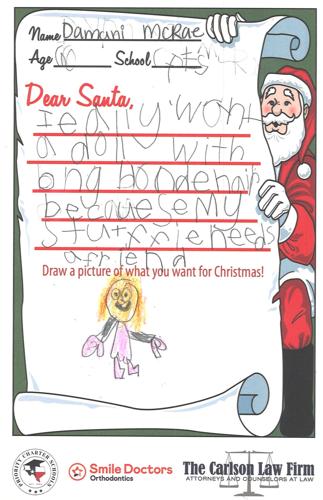 Name Damani McRae
Age School
Dear Santa,
I eally wont
a doll with
ong
because My
needs
a friend
Draw a picture of what you want for Christmas!
PRIORITY CHARTER SCHOOLS
Smile Doctors
Orthodontics
The Carlson Law Firm
ATTORNEYS AND COUNSELORS AT LAW